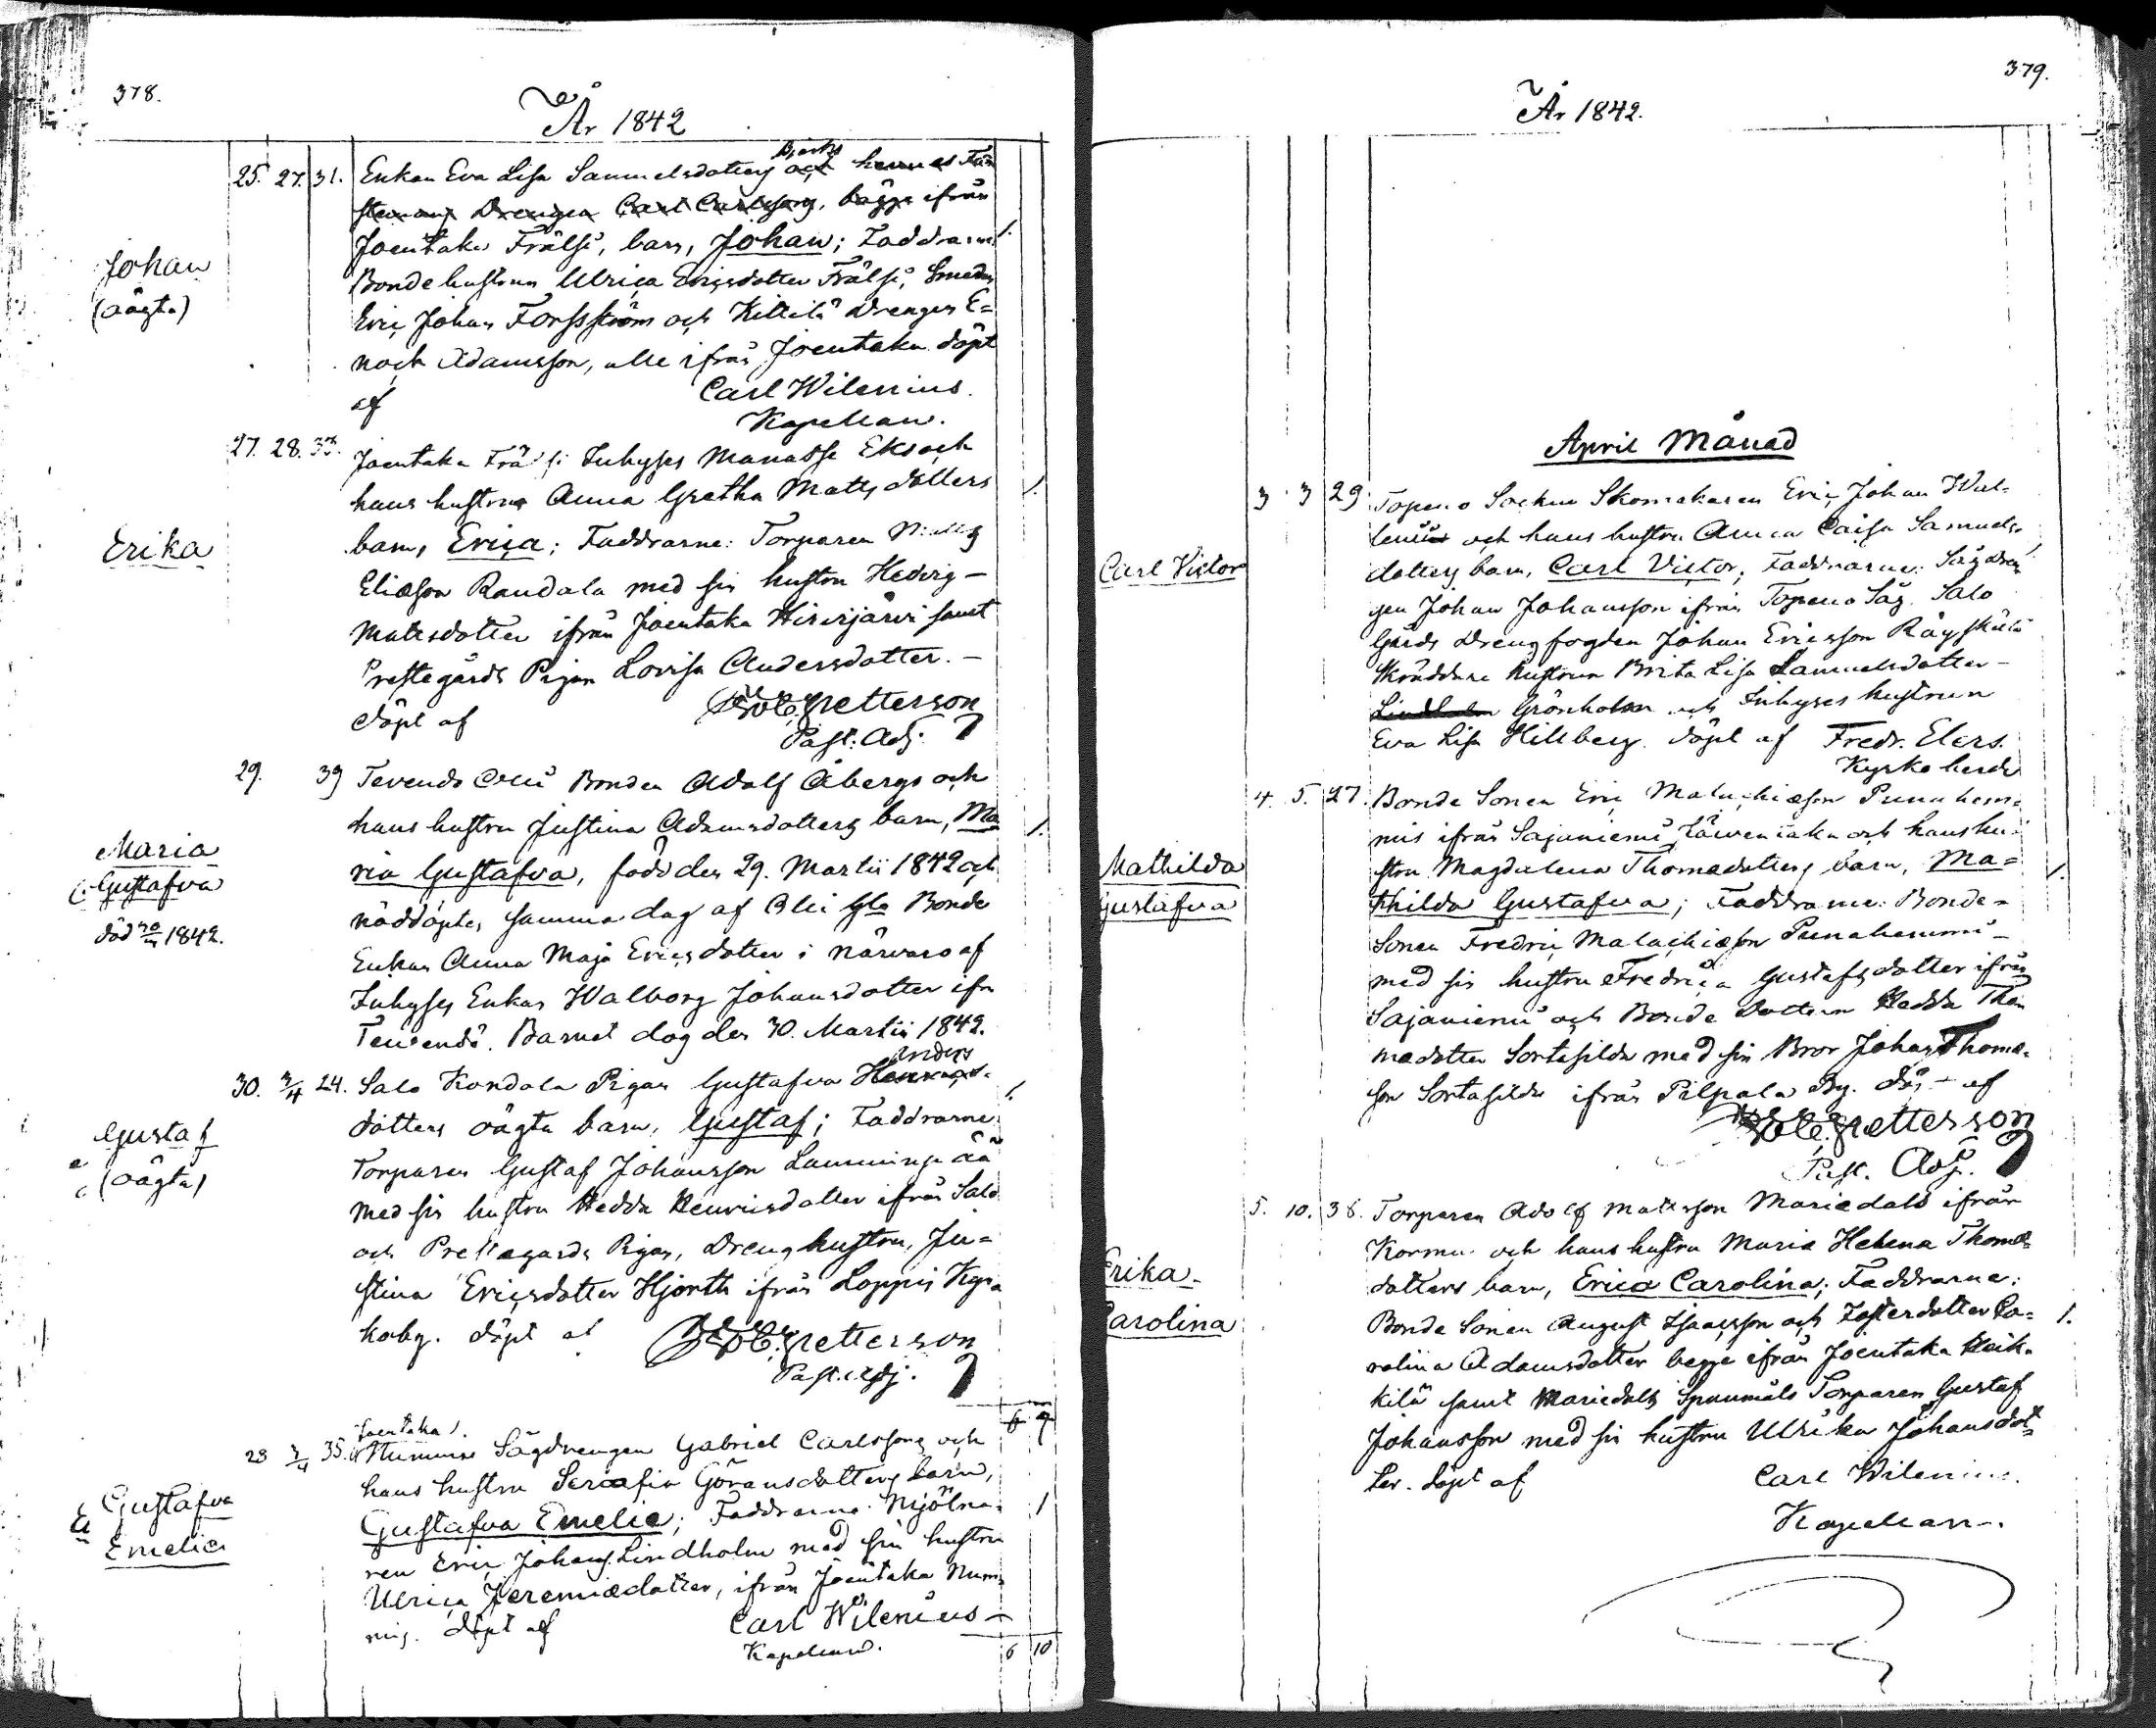 378.
År 1842
25. 27. 31. Enkan Eva Lisa Samuelsdotters och hennes Fäst
steman Drengen Carl Carlssons, bägge ifrån
Joentaka Frälsi, barn, Johan; Faddrarne 1.
Johan
Bondehustrun Ulrica Ericsdotter Frälsi, Smeden
(oägta)
Eric Johan Forsström och Kittilä Drengen E=
noch Adamsson, alle ifrån Joentaka döpt
af Carl Wilenius.
Kapellan.
27. 28. 33. Joentaka Frälsi Inhyses Manasse Eks och
hans hustrus Anna Gretha Matts dotters 1.
Erika
barn, Erica; Faddrarne: Torparen
Eliæson Randala med sin hustru Hedvig -
Matsdotter ifrån Joentaka Hirsijärvi samt
Prestegårds Pigan Lovisa Andersdotter. -
döpt af Petterson
Past: Adj.
29. 39 Tevendo Bonden Adolf Åbergs och
hans hustru Justina Adamsdotters barn, Ma 1.
Maria
Gustafva
ria Gustafva, född den 29. Martii 1842 och
död 30 1842.
nöddöptes samma dag af Bonde
Enkan Anna Maja Ericsdotter i närvaro af
Inhyses Enkan Walborg Johansdotter ifrn
Tevendö. Barnet dog den 30. Martii 1842.
Anders
30. 3/4 24. Salo Kondala Pigan Gustafva Henrics- 1.
dotters oägta barn, Gustaf; Faddrarne
Gustaf
(oägta)
Torparen Gustaf Johansson Lamminpää
med sin hustru Hedda Henricsdotter ifrån Salo
och Prestegårds Pigan, Dreng hustru, Ju=
stina Ericsdotter Hjorth ifrån Loppis Kyr
koby. döpt af Petterson
Past. Adj.
6 9
Joentaka
23 3/4 35. Nummis Sågdrengen Gabriel Carlssons och
hans hustru Serafia Göransdotters barn,
Gustafva
Emelia
Gustafva Emelie; Faddrarne Mjölna= 1
ren Eric Johans. Lindholm med sin hustru
Ulrica Jeremiædotter, ifrån Joentaka Num=
mis. döpt af Carl Wilenius -
Kapellan.
6 10
379.
År 1842.
April Månad
3 3 29 Topeno Socken Skomakaren Eric Johan Wal-
lenius och hans hustru Anna Caisa Samuels-
Carl Victor
dotters barn, Carl Victor, Faddrarne: Sågdren
gen Johan Johansson ifrån Topeno Såg. Salo
Gårds Drengfogden Johan Ericsson Räyskälä
Skräddare hustrun Brita Lisa Samuelsdotter -
Lindholm Grönholm och Inhyses hustrun
Eva Lisa Hillberg. döpt af Fredr. Elers.
Kyrkoherde
4. 5. 27. Bonde Sonen Eric Malachiæson Punahem=
mis ifrån Sajaniemi, och hans hu=
Mathilda
Gustafva
stru Magdalena Thomædotters barn, Ma=
thilda Gustafva; Faddrarne: Bonde= 1.
Sonen Fredric Malachiæson Punahemmi -
med sin hustru Fredrica Gustafsdotter ifrån
Sajaniemi och Bonde Dottern Hedda Tho
mædotter Sortasilda med sin Bror Johan Thomæ-
son Sortasilda ifrån Pilpala By. döpt af
Petterson
Past. Adj.
5. 10. 38. Torparen Adolf Matsson Mariedals ifrån
Kormu och hans hustru Maria Helena Thomæ
Erika
Carolina
dotters barn, Erica Carolina; Faddrarne:
Bonde Sonen August Isacsson och Fosterdotter Ca= 1.
rolina Adamsdotter begge ifrån Joentaka Heik-
kilä samt Mariedals Torparen Gustaf
Johansson med sin hustru Ulrika Johansdot=
ter. döpt af Carl Wilenius.
Kapellan.